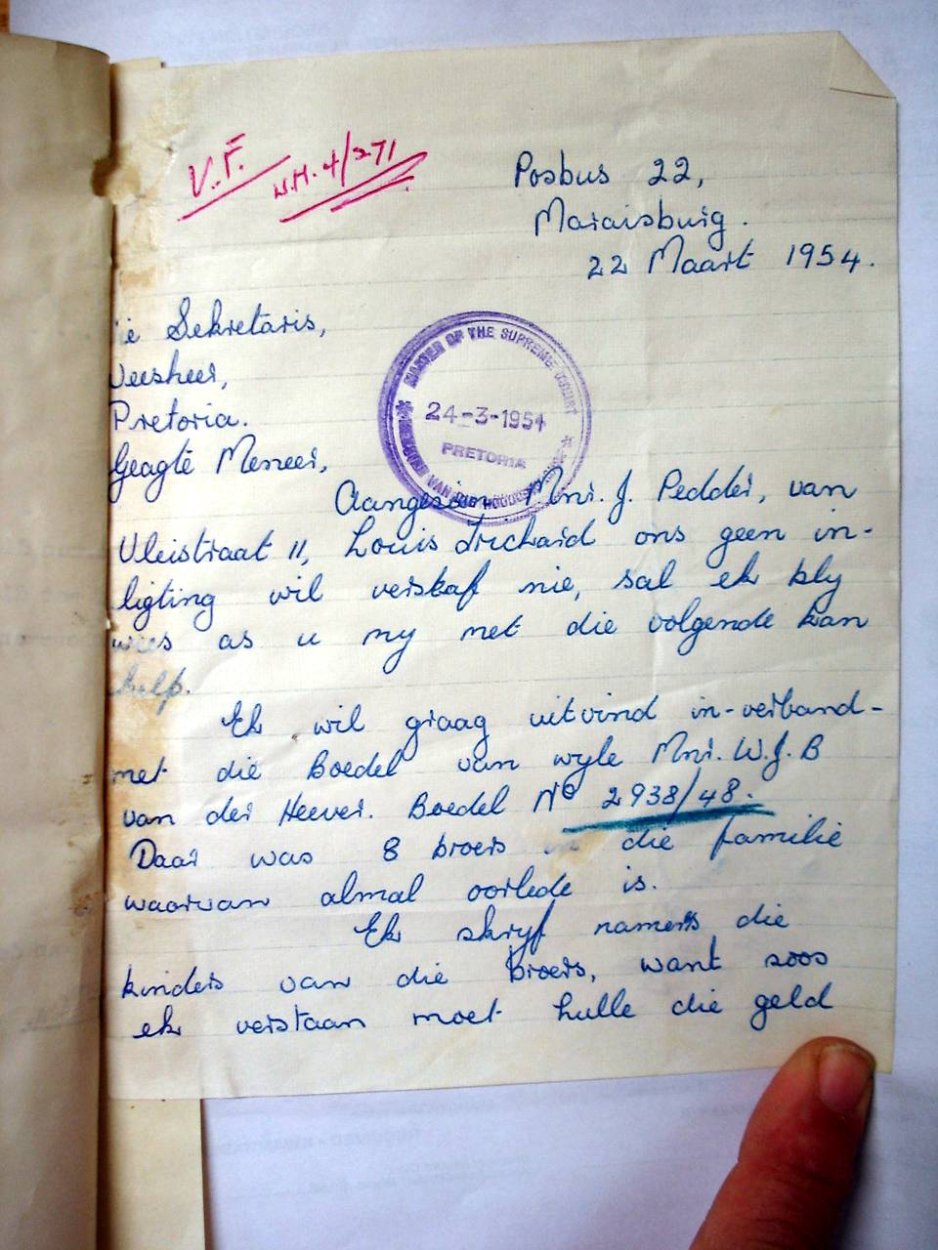 V.F.
W.H. 4/271
Posbus 22,
Maraisburg.
22 Maart 1954.
ie Sekretaris,
Weesheer,
Pretoria.
Geagte Meneer,
MASTER OF THE SUPREME COURT
24-3-1954
PRETORIA
VAN DIE HOOGGEREGSHOF
Aangesien Mnr. J. Pedder, van
Vleistraat 11, Louis Trichard ons geen in-
ligting wil verskaf nie, sal ek bly
wees as u my met die volgende kan
help.
Ek wil graag uitvind in-verband-
met die Boedel van wyle Mnr. W.J.B
van der Heever. Boedel No 2938/48.
Daar was 8 broers in die familie
waarvan almal oorlede is.
Ek skryf namens die
kinders van die broers, want soos
ek verstaan moet hulle die geld